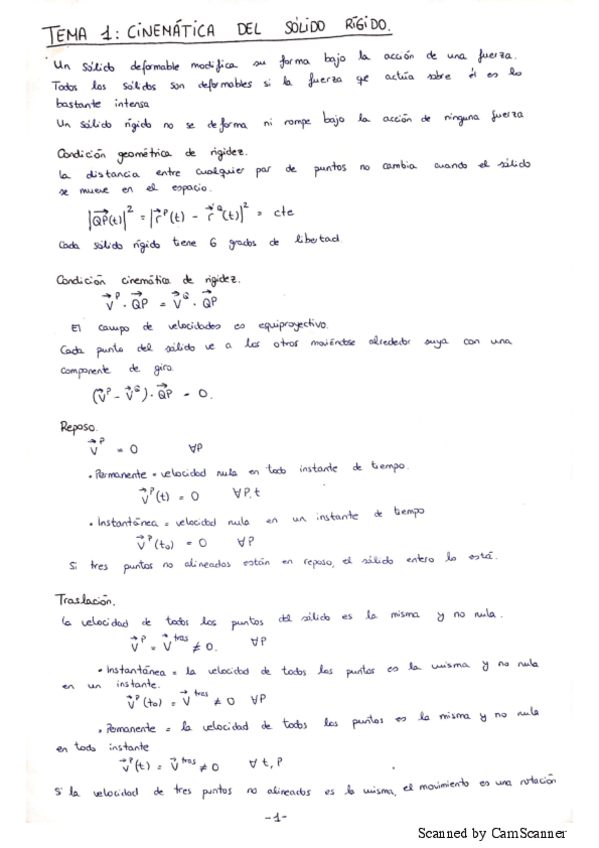 TEMA 1: CINEMÁTICA DEL SÓLIDO RÍGIDO.
Un sólido deformable modifica su forma bajo la acción de una fuerza.
Todos los sólidos son deformables si la fuerza qe actúa sobre él es lo
bastante intensa
Un sólido rígido no se deforma ni rompe bajo la acción de ninguna fuerza
Condición geométrica de rigidez.
La distancia entre cualquier par de puntos no cambia cuando el sólido
se mueve en el espacio.
|QP(t)|² = |r⃗ᴾ(t) - r⃗ᑫ(t)|² = cte
Cada sólido rígido tiene 6 grados de libertad.
Condición cinemática de rigidez.
v⃗ᴾ · QP = v⃗ᑫ · QP
El campo de velocidades es equiproyectivo.
Cada punto del sólido ve a los otros moviéndose alrededor suya con una
componente de giro
(v⃗ᴾ - v⃗ᑫ) · QP = 0.
Reposo.
v⃗ᴾ = 0 ∀P
• Permanente = velocidad nula en todo instante de tiempo.
v⃗ᴾ(t) = 0 ∀P,t
• Instantánea = velocidad nula en un instante de tiempo
v⃗ᴾ(t₀) = 0 ∀P
Si tres puntos no alineados están en reposo, el sólido entero lo está.
Traslación.
La velocidad de todos los puntos del sólido es la misma y no nula.
v⃗ᴾ = v⃗ᵗʳᵃˢ ≠ 0. ∀P
• Instantánea = la velocidad de todos los puntos es la misma y no nula
en un instante.
v⃗ᴾ(t₀) = v⃗ᵗʳᵃˢ ≠ 0 ∀P
• Permanente = la velocidad de todos los puntos es la misma y no nula
en todo instante
v⃗ᴾ(t) = v⃗ᵗʳᵃˢ ≠ 0 ∀t,P
Si la velocidad de tres puntos no alineados es la misma, el movimiento es una rotación
-1-
Scanned by CamScanner